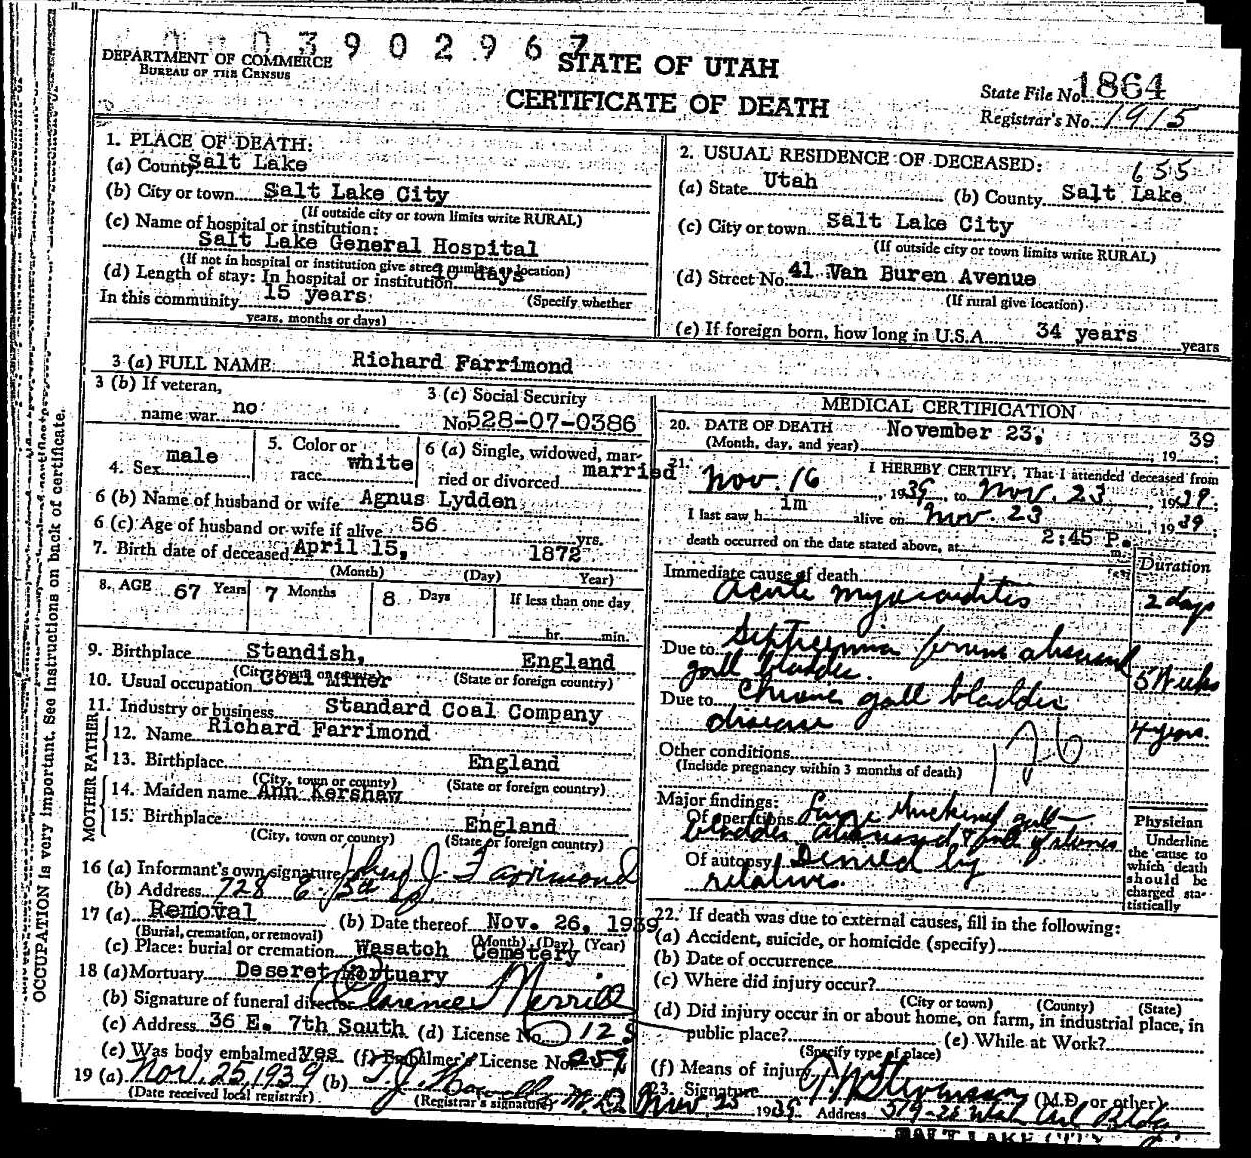 0 3 9 0 2 9 6 7
DEPARTMENT OF COMMERCE
BUREAU OF THE CENSUS
STATE OF UTAH
CERTIFICATE OF DEATH
State File No. 1864
Registrar's No. 1915
1. PLACE OF DEATH:
(a) County Salt Lake
(b) City or town Salt Lake City
(If outside city or town limits write RURAL)
(c) Name of hospital or institution:
Salt Lake General Hospital
(If not in hospital or institution give street number or location)
(d) Length of stay: In hospital or institution 10 days
In this community 15 years (Specify whether
years, months or days)
2. USUAL RESIDENCE OF DECEASED: 655
(a) State Utah (b) County Salt Lake
(c) City or town Salt Lake City
(If outside city or town limits write RURAL)
(d) Street No. 41 Van Buren Avenue
(If rural give location)
(e) If foreign born, how long in U.S.A. 34 years years
3 (a) FULL NAME Richard Farrimond
3 (b) If veteran,
name war no
3 (c) Social Security
No. 528-07-0386
4. Sex male
5. Color or
race white
6 (a) Single, widowed, mar-
ried or divorced married
6 (b) Name of husband or wife Agnus Lydden
6 (c) Age of husband or wife if alive 56 yrs.
7. Birth date of deceased April 15, 1872
(Month) (Day) Year)
8. AGE 67 Years 7 Months 8 Days If less than one day
hr. min.
9. Birthplace Standish, England
(City, town or county) (State or foreign country)
10. Usual occupation Coal Miner
11. Industry or business Standard Coal Company
FATHER
12. Name Richard Farrimond
13. Birthplace England
(City, town or county) (State or foreign country)
MOTHER
14. Maiden name Ann Kershaw
15. Birthplace England
(City, town or county) (State or foreign country)
16 (a) Informant's own signature John J. Farrimond
(b) Address 728 E. 5th So
17 (a) Removal (b) Date thereof Nov. 26, 1939
(Burial, cremation, or removal) (Month) (Day) (Year)
(c) Place: burial or cremation Wasatch Cemetery
18 (a) Mortuary Deseret Mortuary
(b) Signature of funeral director Clarence Merrill
(c) Address 36 E. 7th South (d) License No. 125
(e) Was body embalmed? yes (f) Embalmer's License No. 259
19 (a) Nov. 25, 1939 (b) T. J. Howells M.D.
(Date received local registrar) (Registrar's signature)
MEDICAL CERTIFICATION
20. DATE OF DEATH November 23, 1939
(Month, day, and year)
21. I HEREBY CERTIFY, That I attended deceased from
Nov. 16, 1939, to Nov. 23, 1939;
I last saw him alive on Nov. 23 1939;
death occurred on the date stated above, at 2:45 P. m.
Duration
Immediate cause of death
Acute myocarditis 2 days
Due to Septicemia from abscessed
gall bladder. 5 Weeks
Due to Chronic gall bladder
disease 4 years.
Other conditions
(Include pregnancy within 3 months of death)
126
Major findings:
Of operations Large thickened gall-
bladder abscessed & full of stones
Of autopsy Denied by
relatives.
Physician
Underline
the cause to
which death
should be
charged sta-
tistically
22. If death was due to external causes, fill in the following:
(a) Accident, suicide, or homicide (specify)
(b) Date of occurrence
(c) Where did injury occur?
(City or town) (County) (State)
(d) Did injury occur in or about home, on farm, in industrial place, in
public place? (e) While at Work?
(Specify type of place)
(f) Means of injury
23. Signature Stevenson (M.D. or other)
Nov 25 1939 Address
SALT LAKE CITY
OCCUPATION is very important. See instructions on back of certificate.